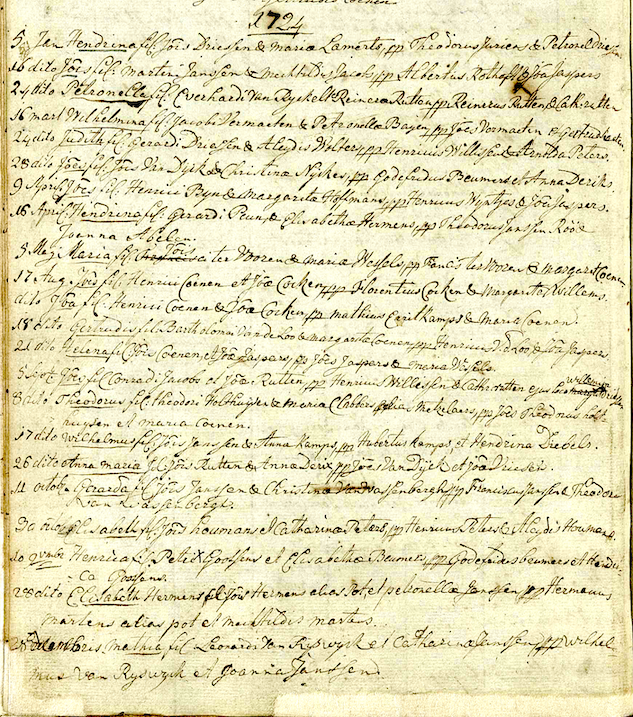 1724
5 Jan Hendrina fil: Jois Driesen & Maria Lamerts, pp Theodorus Juriens & Petronel Driesen
16 dito Jois fil: Martini Janssen & Mechtildis Jacobs, pp Albertus Rothoff & Joa Jaspers
24 dito Petronella fil: Everhardi Van Ryckelt & Reinera Rutten, pp Reinerus Rutten & Cath: rutten
16 mart Wilhelmina fil: Jacobi Vermaeten & Petronellæ Bayen, pp Jois Vermaeten & gertrudis
24 dito Judith fil: Gerardi Driessen & Aleydis Wolters, pp Henricus Willissen & Arnolda Peters.
28 dito Joes fil: Jois Van Dyck & Christinæ Nyskes, pp Godefridus Beumers et Anna Deriks
9 April: Joes fil: Henrici Byn & Margaretæ Hofmans, pp Henricus Wyntjes & Joa Jaspers.
16 April: Hendrina fil: Gerardi Peun, & Elisabethæ Hermens, pp Theodorus Jansen Röö &
Joanna Abelen.
5 May Maria fil: Jois ter Voren & Mariæ Wessels, pp Francis ter Voren & Margaret Coenen
17 Aug. Joes fil: Henrici Coenen et Joæ Cocken, pp Florentius Cocken & Margareta Willems.
dito Joa fil: Henrici Coenen & Joæ Cocken, pp Mathias Everkamps & Maria Coenen.
18 dito Gertrudis fil: Bartholomei Van de Loo & Margareta Coenen, pp Henricus V. d. Loo, & Joa Jaspers
21 dito Helena fil: Jois Coenen et Joæ Jaspers, pp Joes Jaspers & Maria Wessels.
5 Sept Joes fil: Conradi Jacobs et Joæ Rutten, pp Henricus Willessen & Cath: rutten ejus loco
8 dito Theodorus fil: Theodori Holthuysen & Maria Clabbers, pp Joes Theodorus holt-
huysen et maria Coenen.
17 dito Wilhelmus fil: Jois Janssen & Anna Kamps, pp Hubertus Kamps, et Hendrina Diebels.
26 dito Anna maria fil: Jois Rutten & Anna Derix pp Joes Van Dyck et Joa Driesen.
11 octob. Gerarda fil: Jois Janssen & Christina Wassenbergh pp Franciscus Jansen & Theodora
Van Wassenbergh.
30 octob Elisabeth fil: Jois houmans et Catharinæ Peters, pp Henricus Peters & Aleydis Houmans.
10 9vmbr Henrica fil: Petri Goossens et Elisabethæ Beumers, pp Godefridus beumers et Hendri-
ca Goossens.
28 dito Elisabeth Hermens fil: Jois Hermens alias Pot, et petronellæ Janssen pp Hermanus
martens alias pot et mechtildis martens.
28 decembris, mathia fil: Leonardi Van Ryswyck et Catharina Janssen pp Wilhel
mus van Ryswyck et Joanna Janssen